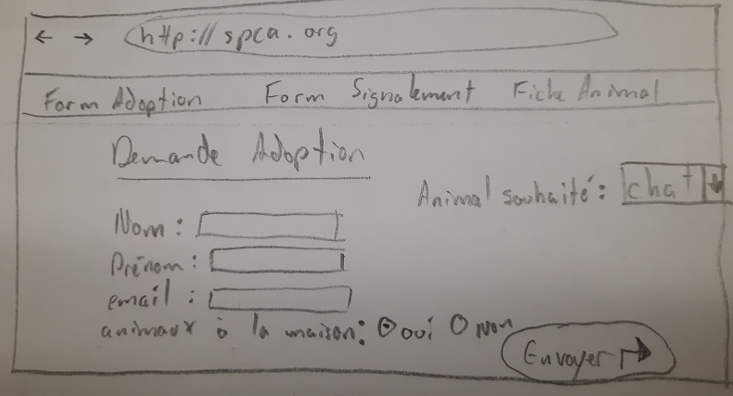 http://spca.org
Form Adoption Form Signalement Fiche Animal
Demande Adoption
Animal souhaité: chat
Nom:
Prénom:
email:
animaux à la maison: oui non
Envoyer